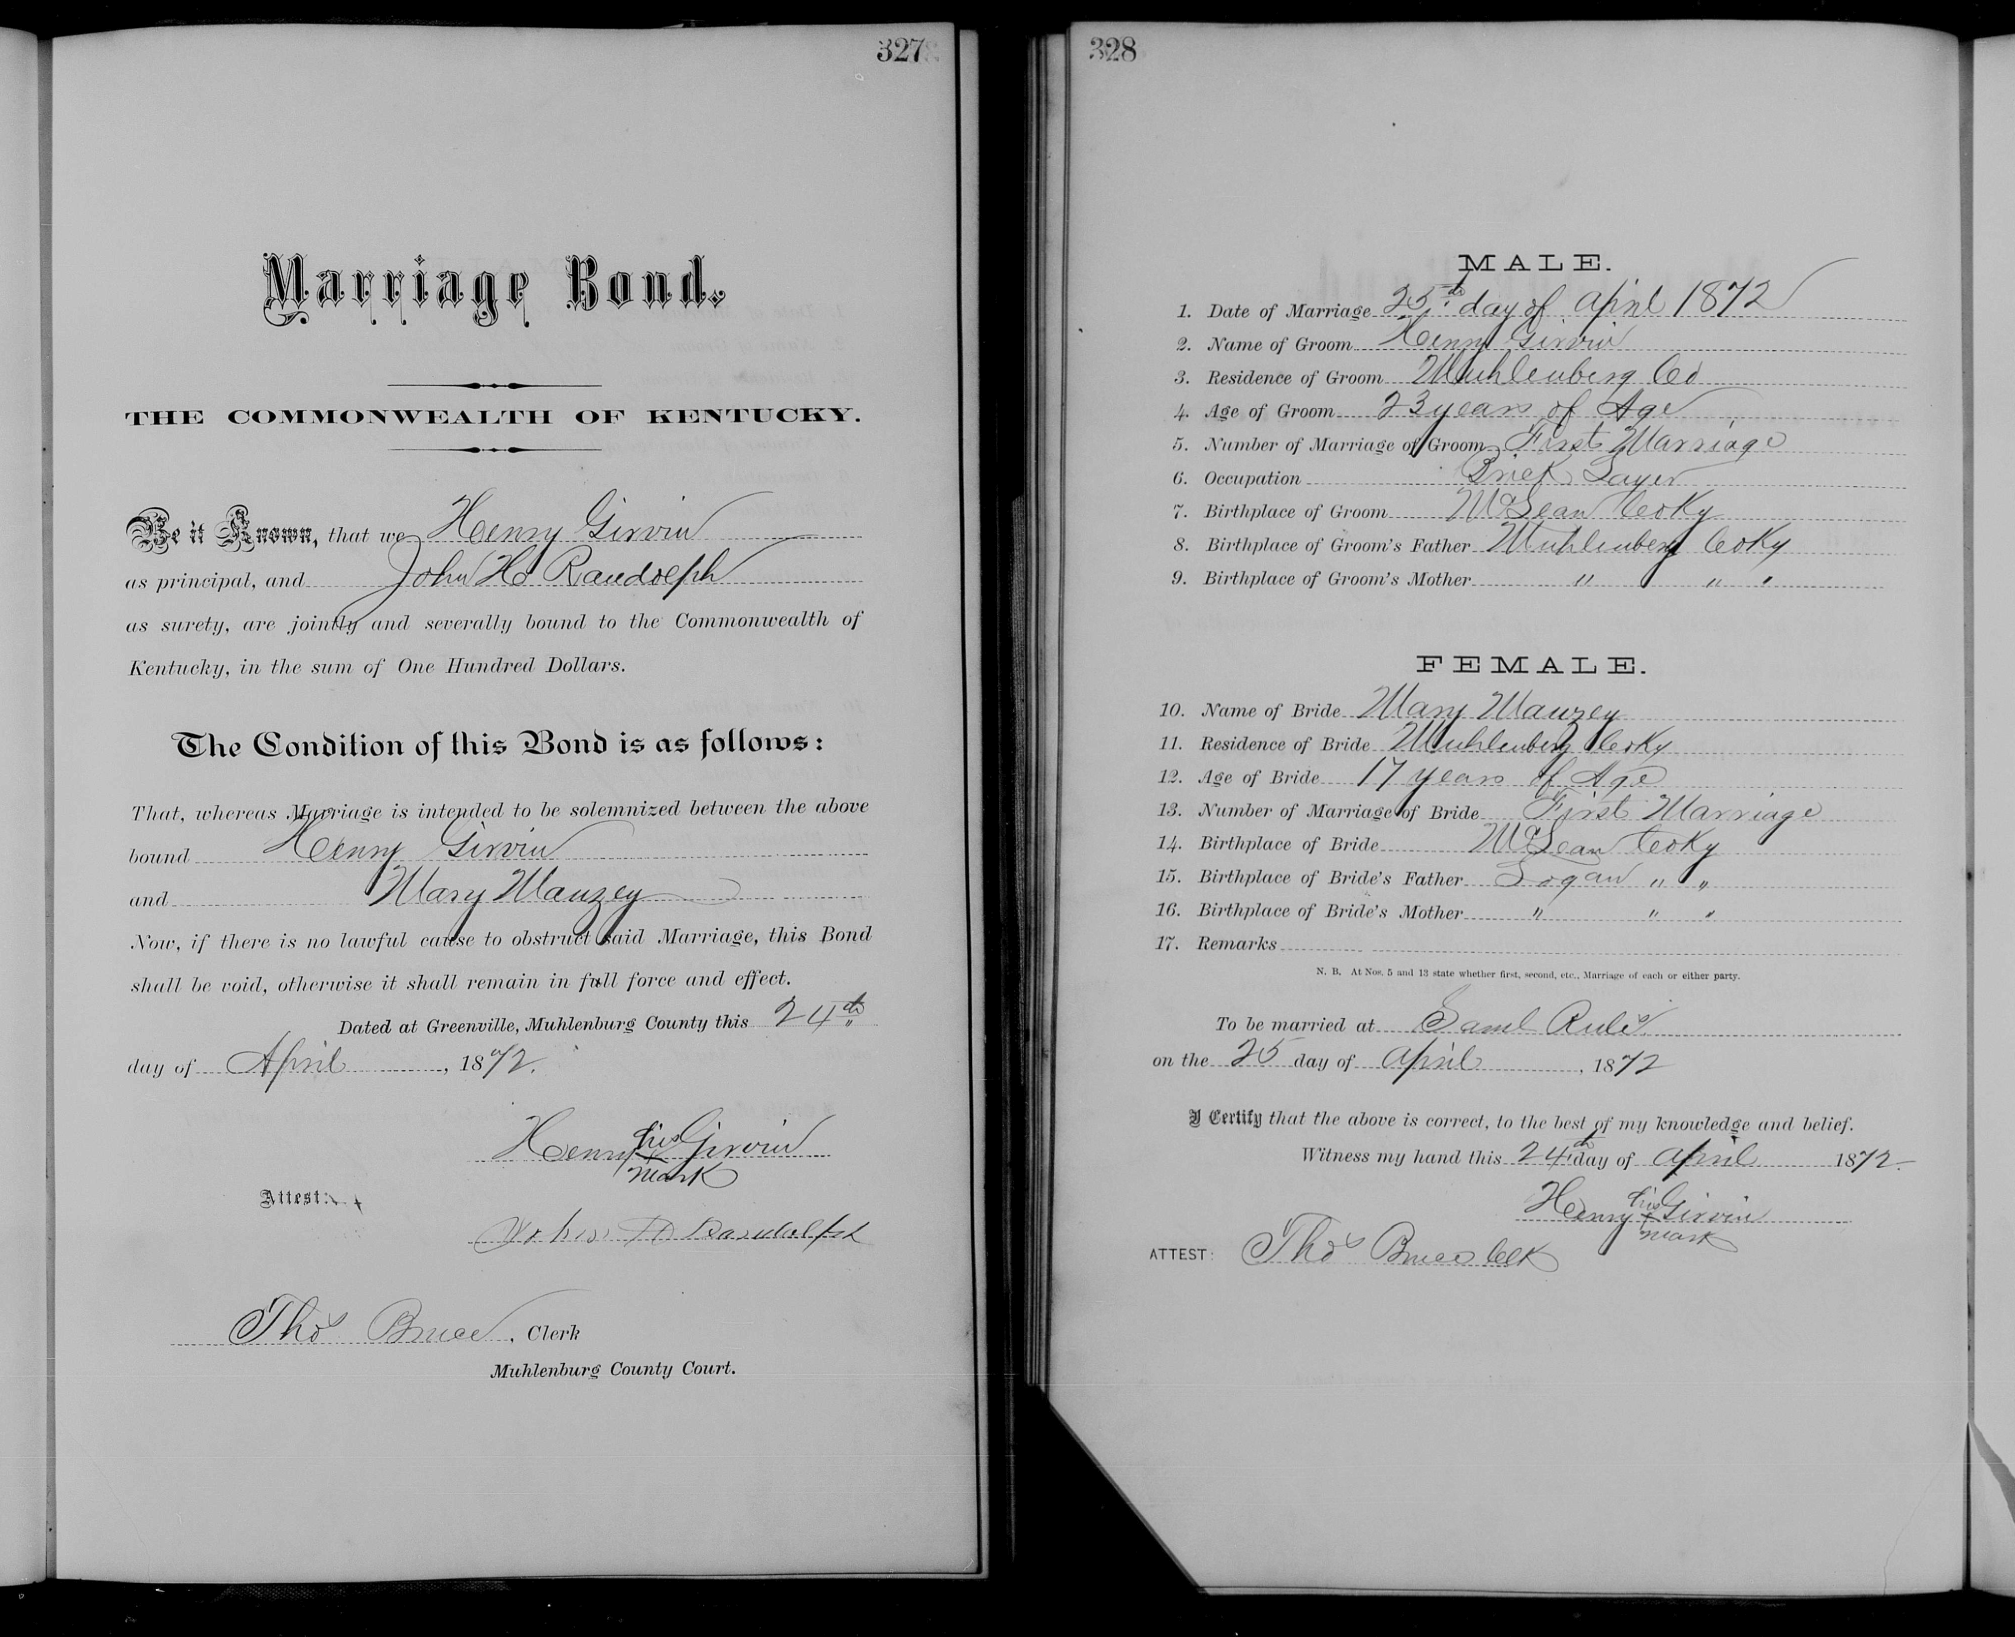 327
Marriage Bond.
THE COMMONWEALTH OF KENTUCKY.
Be it Known, that we Henry Girvin
as principal, and John H Randolph
as surety, are jointly and severally bound to the Commonwealth of
Kentucky, in the sum of One Hundred Dollars.
The Condition of this Bond is as follows:
That, whereas Marriage is intended to be solemnized between the above
bound Henry Girvin
and Mary Mauzey
Now, if there is no lawful cause to obstruct said Marriage, this Bond
shall be void, otherwise it shall remain in full force and effect.
Dated at Greenville, Muhlenburg County this 24th
day of April, 1872.
Henry his x mark Girvin
Attest:
John H Randolph
Thos Bruce, Clerk
Muhlenburg County Court.
328
MALE.
1. Date of Marriage 25th day of April 1872
2. Name of Groom Henry Girvin
3. Residence of Groom Muhlenberg Co
4. Age of Groom 23 years of Age
5. Number of Marriage of Groom First Marriage
6. Occupation Brick Layer
7. Birthplace of Groom McLean Co Ky
8. Birthplace of Groom's Father Muhlenberg Co Ky
9. Birthplace of Groom's Mother " " "
FEMALE.
10. Name of Bride Mary Mauzey
11. Residence of Bride Muhlenberg Co Ky
12. Age of Bride 17 years of Age
13. Number of Marriage of Bride First Marriage
14. Birthplace of Bride McLean Co Ky
15. Birthplace of Bride's Father Logan " "
16. Birthplace of Bride's Mother " " "
17. Remarks
N. B. At Nos. 5 and 13 state whether first, second, etc., Marriage of each or either party.
To be married at Saml
on the 25 day of April, 1872
I Certify that the above is correct, to the best of my knowledge and belief.
Witness my hand this 24th day of April 1872
Henry his x mark Girvin
ATTEST: Thos Bruce Clk